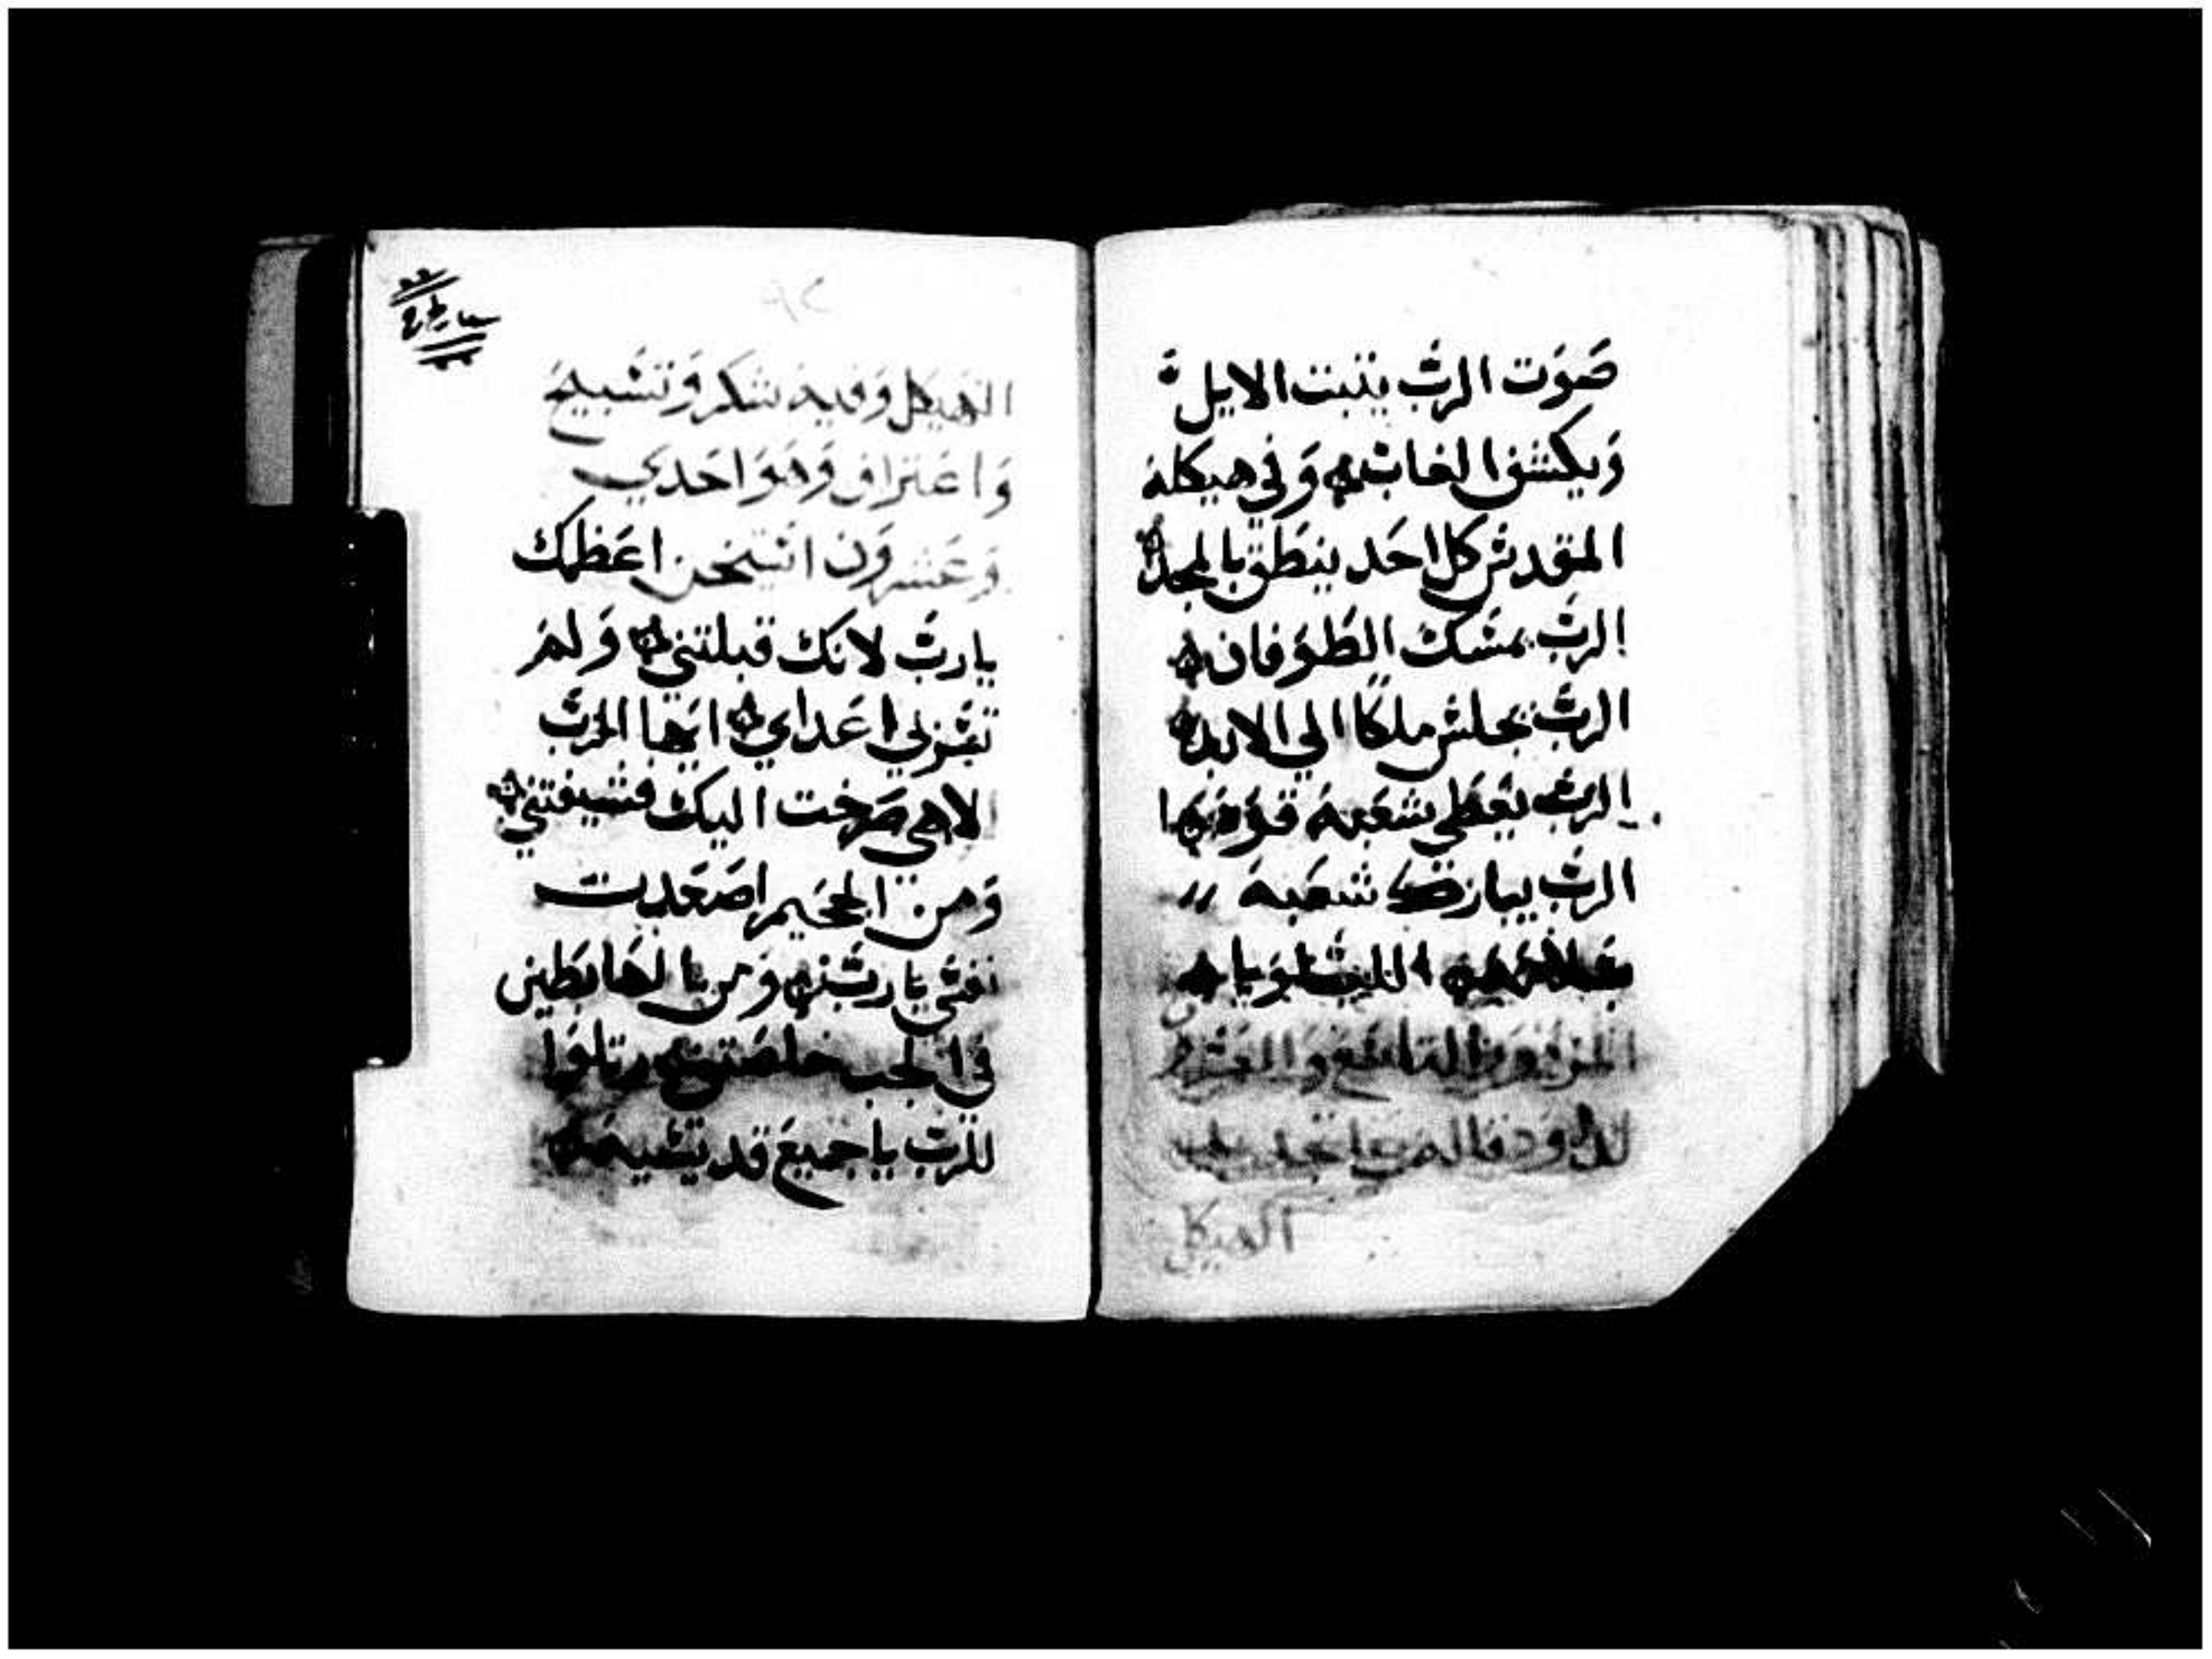 صَوَت الربّ يثبت الايل
وَيكشف الغابه وَفي هيكله
المقدس كل احَد ينطق بالمجد
الربّ يمسك الطوَفان
الربّ يجلس ملكا الي الابد
الربّ يعَطي شعَبه قوَه
الربّ يبارك شعَبه
الليلوَيا
المزموَر التاسع وَالعشر
لداوود قاله علي تجديد
الهيكل
الهيكل وَفيه شكر وَتسبيح
وَاعتراف وَهوَ احَدي
وَعَشروَن استيخن اعَظمك
يا ربّ لانك قبلتني وَلم
تسر لي اعَداي ايها الربّ
الاهي صرخت اليك فشفيتني
وَمن الجحَيم اصعَدت
نفسي يا ربّ وَمن الهابطين
في الجب خلصتني رتلوا
للربّ يا جميعَ قديسيه